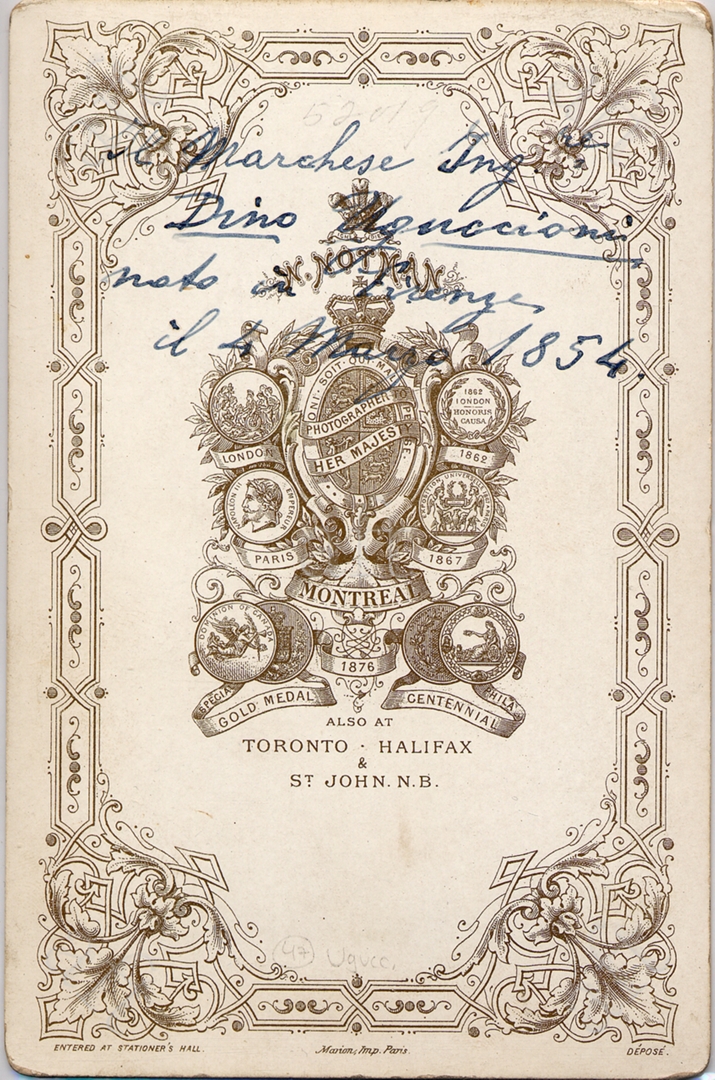 52019
il Marchese Ing re
Dino Uguccioni
nato in Firenze
il 4 Marzo 1854.
W. NOTMAN
HONI · SOIT · QUI · MAL
PHOTOGRAPHER TO
HER MAJESTY
1862
LONDON
HONORIS
CAUSA
LONDON
1862
NAPOLEON III EMPEREUR
EXPOSITION UNIVERSELLE
PARIS
1867
MONTREAL
DOMINION OF CANADA
1876
SPECIAL GOLD MEDAL
CENTENNIAL PHILA
ALSO AT
TORONTO · HALIFAX
&
ST JOHN. N.B.
47 Ugucc.
ENTERED AT STATIONER'S HALL.
Marion, Imp. Paris.
DÉPOSÉ.